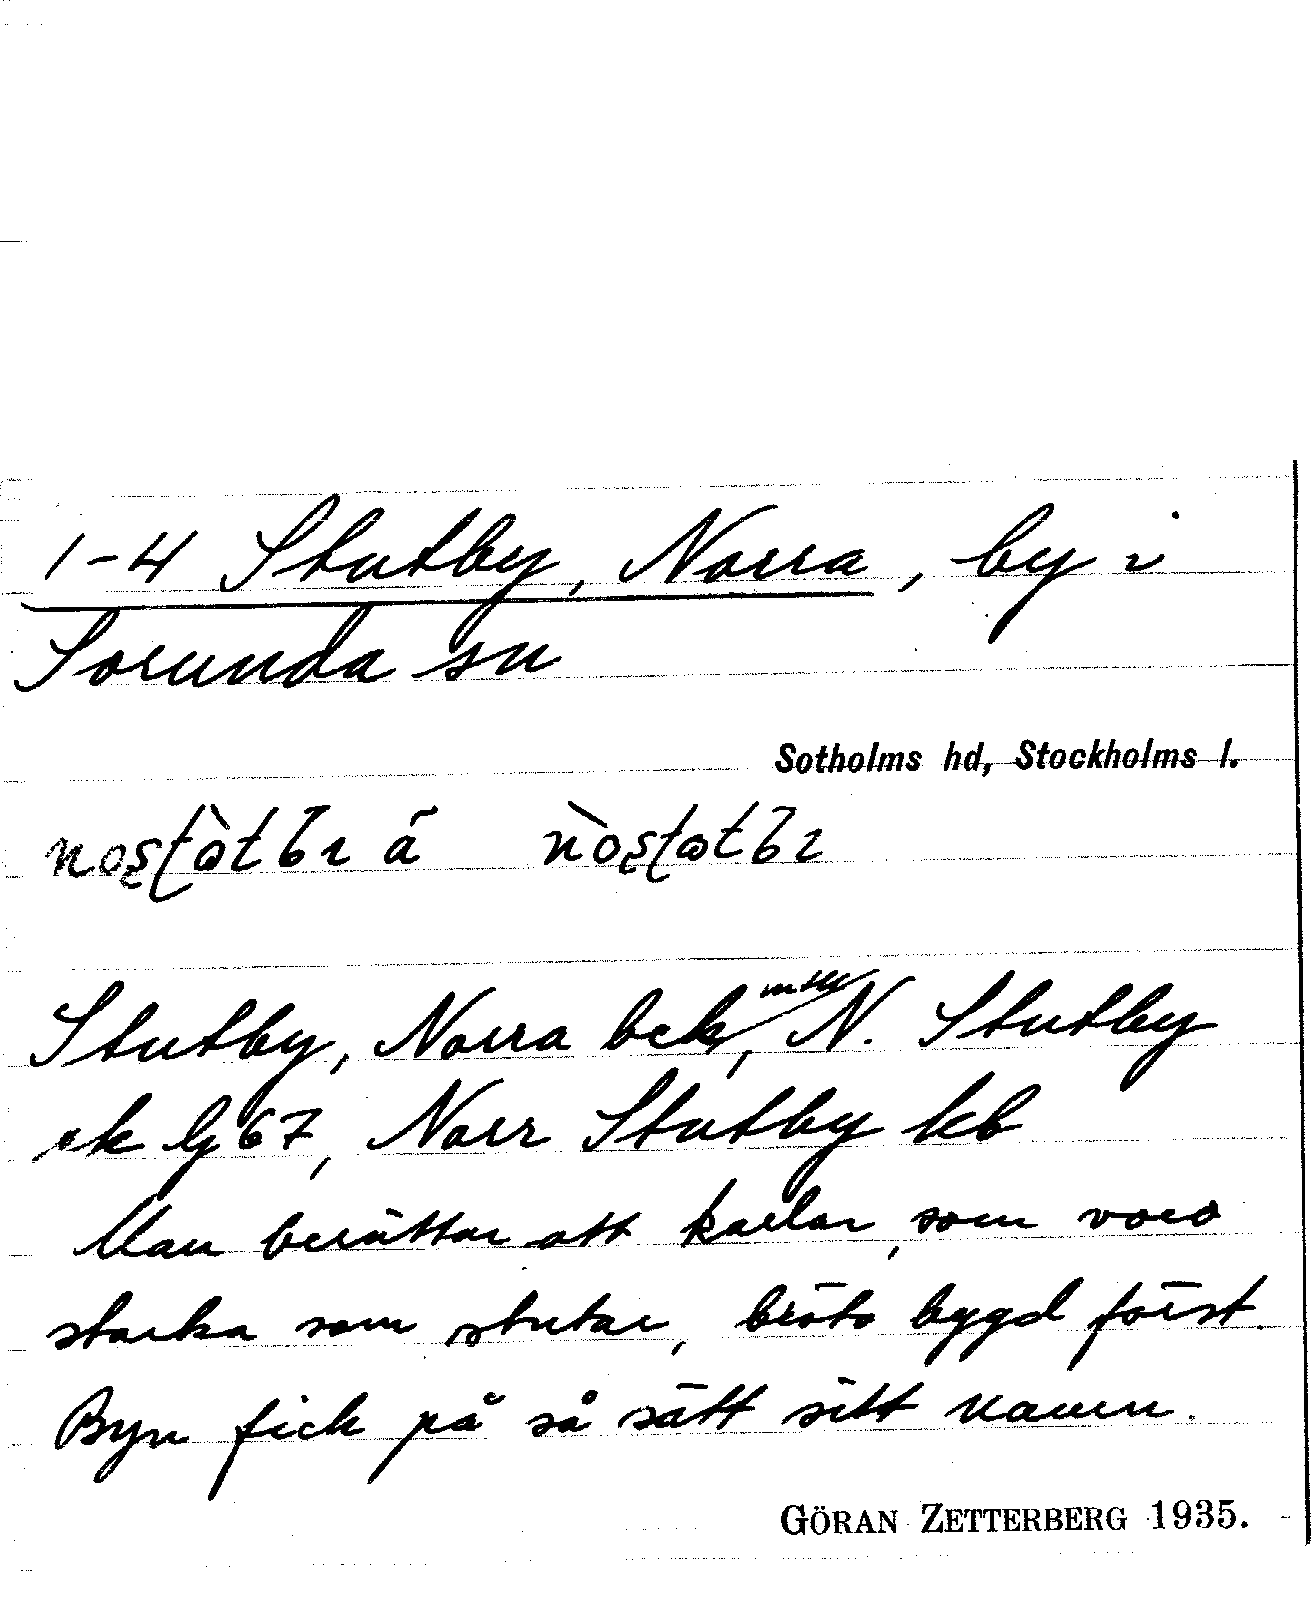 1-4 Stutby, Norra, by i
Sorunda sn
Sotholms hd, Stockholms l.
Stutby, Norra bek, N. Stutby
ek bj 67, Norr Stutby kb
Man berättar att karlar, som voro
starka som stutar, bröto bygd först.
Byn fick på så sätt sitt namn.
GÖRAN ZETTERBERG 1935.